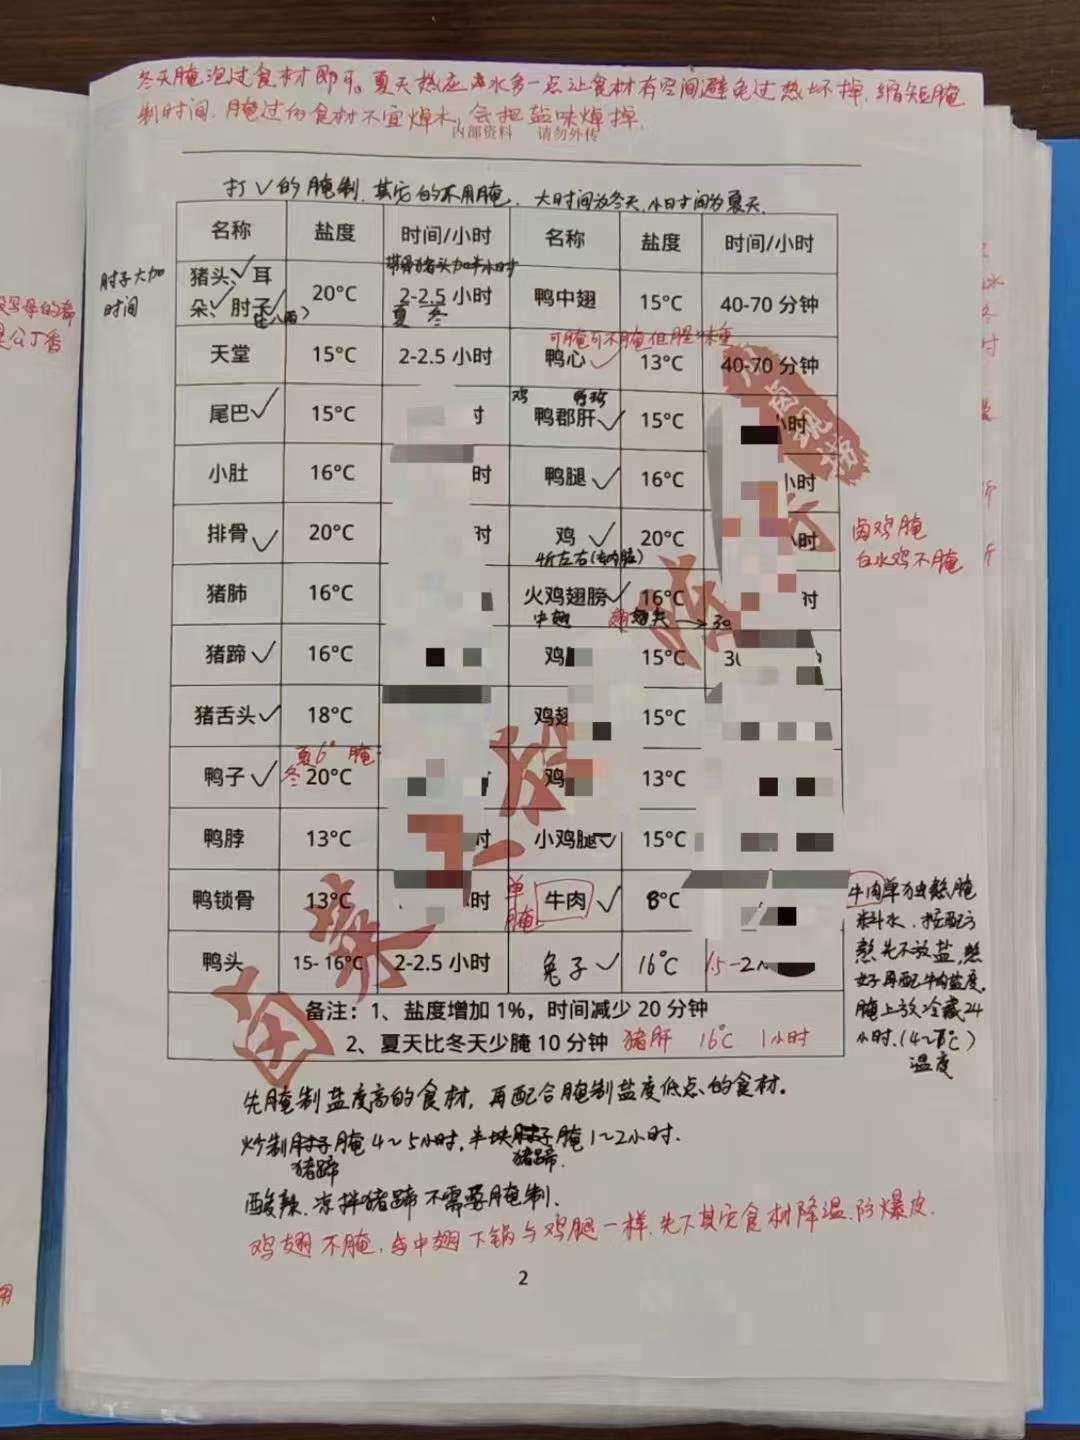 冬天腌泡过食材即可。夏天热应水多一点让食材有空间避免过热坏掉,缩短腌
制时间,腌过的食材不宜焯水,会把盐味焯掉.
内部资料 请勿外传
打√的腌制,其它的不用腌, 大时间为冬天,小时间为夏天.
名称 盐度 时间/小时 名称 盐度 时间/小时
带骨猪头加半小时
肘子大加
时间
猪头√、耳
朵√、肘子 20°C 2-2.5 小时 鸭中翅 15°C 40-70 分钟
夏 冬
可腌可不腌但腥味重
天堂 15°C 2-2.5 小时 鸭心√ 13°C 40-70 分钟
鸡
尾巴√ 15°C 时 鸭郡肝√ 15°C 小时
小肚 16°C 时 鸭腿√ 16°C 小时
排骨√ 20°C 时 鸡√ 20°C 小时
4斤左右(去内脏)
卤鸡腌
白水鸡不腌
猪肺 16°C 火鸡翅膀√ 16°C 时
中翅 翅尖→30
猪蹄√ 16°C 鸡 15°C
猪舌头√ 18°C 鸡翅 15°C
夏6° 腌
鸭子√ 冬20°C 鸡 13°C
鸭脖 13°C 时 小鸡腿√ 15°C
鸭锁骨 13°C 时 单腌 牛肉√ 8°C
鸭头 15-16°C 2-2.5 小时 兔子√ 16°C
牛肉单独熬腌
料水,按配方
熬先不放盐,熬
好再配牛肉盐度,
腌上放冷藏24
小时.(4~8°C)
温度
备注:1、盐度增加 1%,时间减少 20 分钟
2、夏天比冬天少腌 10 分钟 猪肝 16°C 1小时
先腌制盐度高的食材,再配合腌制盐度低点的食材.
炒制猪蹄腌4~5小时,半块猪蹄腌1~2小时.
酸辣、凉拌猪蹄不需要腌制.
鸡翅不腌,与中翅下锅与鸡腿一样,先下其它食材降温,防爆皮.
2